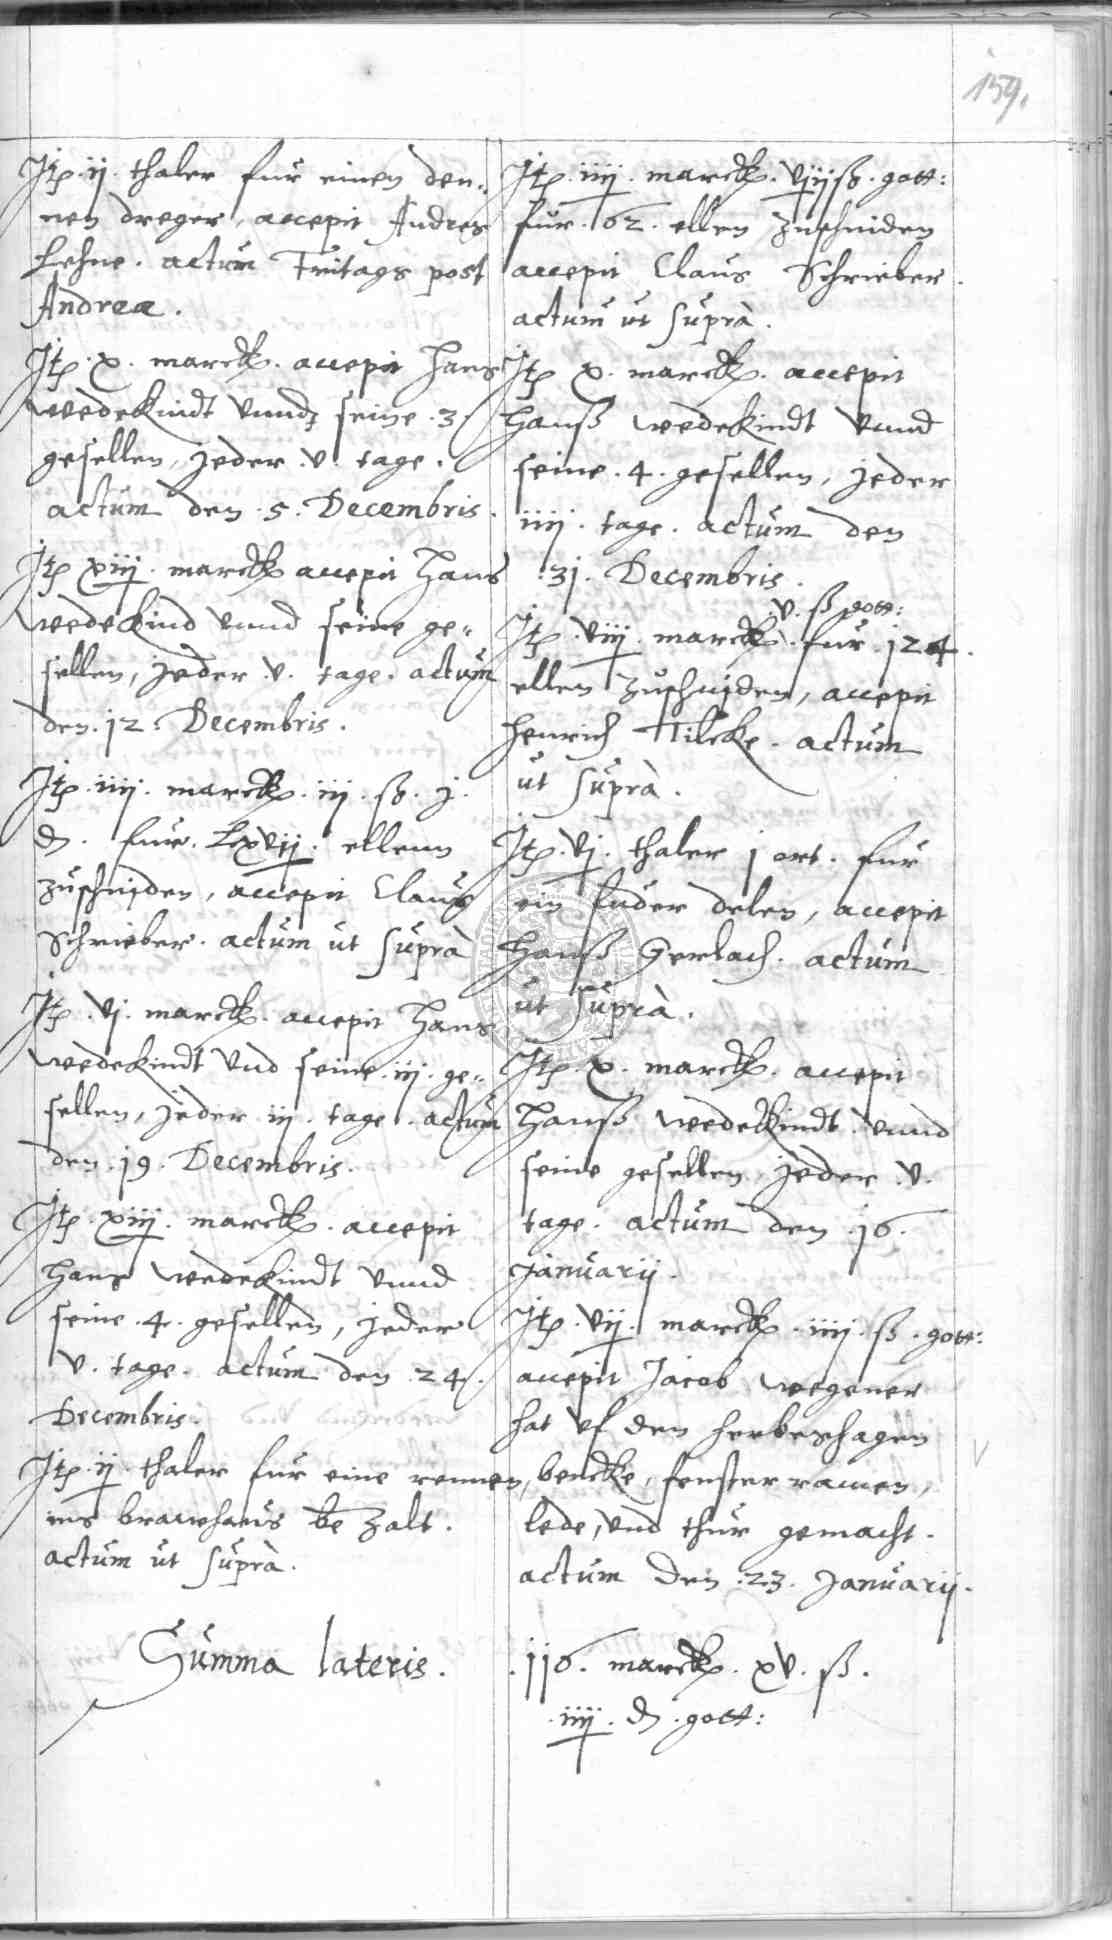 159.
Itp. ij. thaler fur einen den„
nen dreger, accepit Andres
Lehne. actum Fritags post
Andreæ.
Itp. x. marck. accepit Hans
Wedekindt vnnd seine .3.
gesellen, jeder .v. tage.
actum den .5. Decembris.
Itp xiij. marck accepit Hans
Wedekind vnnd seine ge„
sellen, jeder .v. tage. actum
den .12. Decembris.
Itp. iiij. marck. iij. ß. j.
₰. fur. Lxvij. ellenn
zuschniden, accepit Claus
Schrieber. actum ut suprà
Itp. vj. marck. accepit Hans
Wedekindt vnd seine .iij. ge„
sellen, jeder iij. tage. actum
den .19. Decembris.
Itp. xiij. marck. accepit
Hans Wedekindt vnnd
seine .4. gesellen, jeder
v. tage. actum den .24.
Decembris.
Itp. ij. thaler fur eine rennen,
ins brawhaus bezalt.
actum ut suprà.
Summa lateris.
Itp. iiij. marck. vjij ß. gott:
fur .62. ellen zuschniden
accepit Claus Schrieber.
actum ut suprà.
Itp x. marck. accepit
Hanß Wedekindt vnnd
seine .4. gesellen, jeder
iiij. tage. actum den
.31. Decembris.
.v. ß gott:
Itp. viij. marck. fur .124.
ellen zuschniden, accepit
Henrich Tilcke. actum
ut suprà.
Itp. vj. thaler j ort. fur
ein fuder delen, accepit
Hanß Gerlach. actum
ut suprà.
Itp. x. marck. accepit
Hanß Wedekindt vnnd
seine gesellen jeder .v.
tage. actum den .16.
Januarij.
Itp. vij. marck. iiij. ß. gott:
accepit Jacob Wegener
hat vf den Herbershagen
bencke, fenster ramen,
lede, vnd thur gemacht.
actum den .23. Januarij.
.116. marck. xv. ß.
.iiij. ₰. gott: